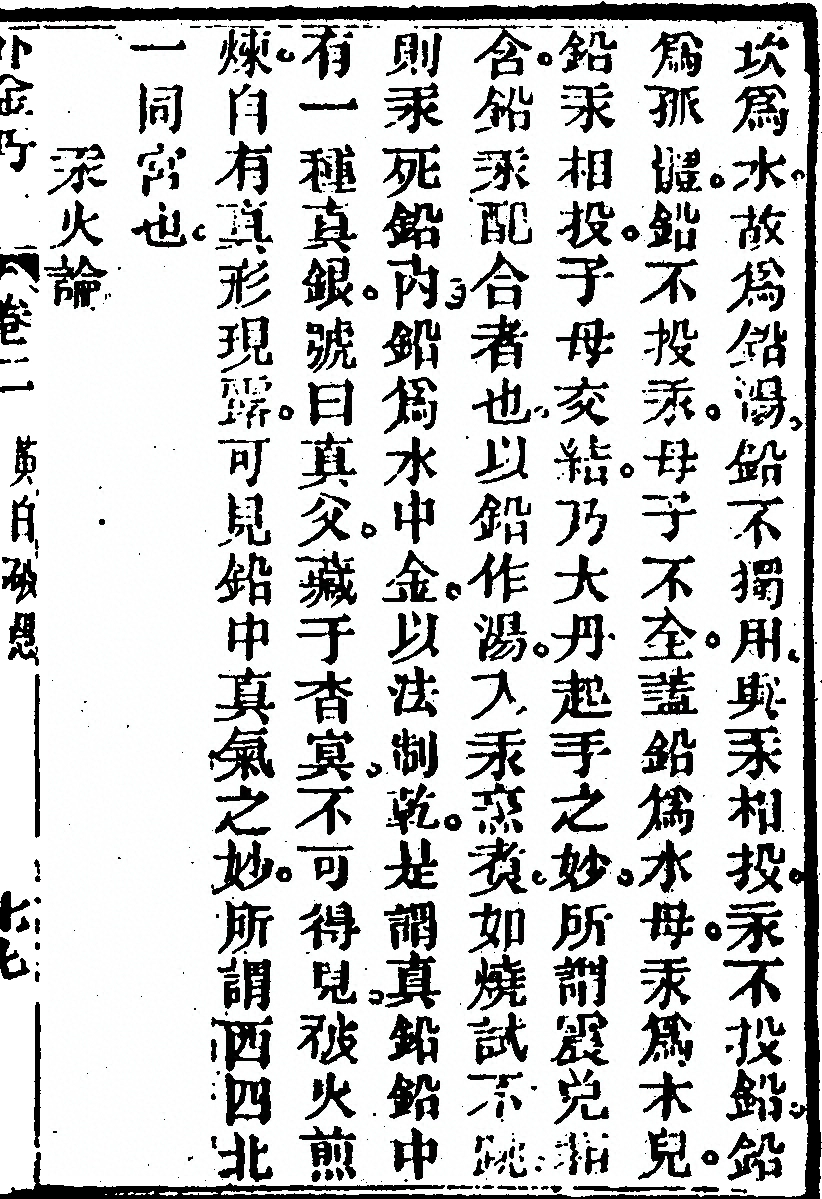 坎爲水故爲鉛湯鉛不獨用與汞相投汞不投鉛鉛
爲孤體鉛不投汞母子不全蓋鉛爲水母汞爲木兒
鉛汞相投子母交結乃大丹起手之妙所謂震兌
含鉛汞配合者也以鉛作湯入汞烹煮如燒試不跳
則汞死鉛内鉛爲水中金以法制乾是謂真鉛鉛中
有一種真銀號曰真父藏于杳冥不可得見被火煎
煉白有真形現露可見鉛中真氣之妙所謂西四北
一同宮也
汞火論
卷二
黃白破愚
七七